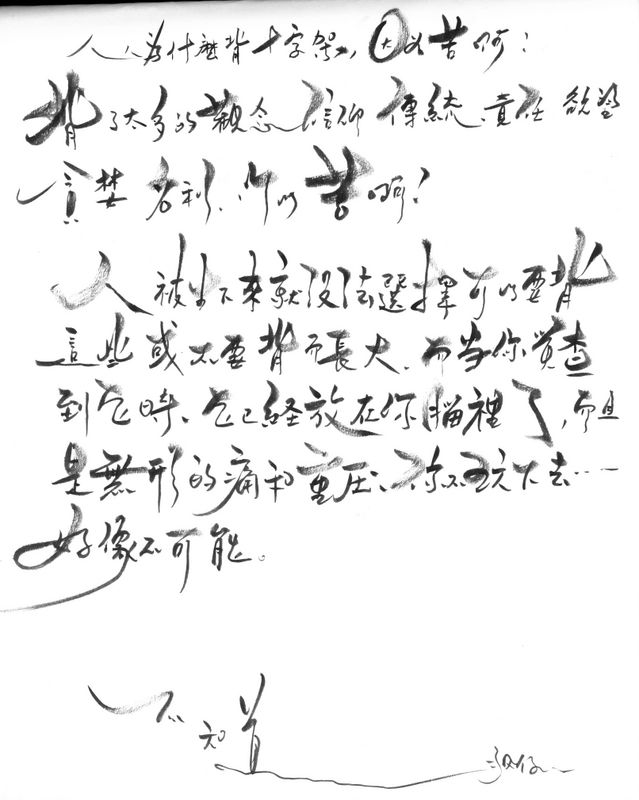 人人為什麼背十字架，因為苦啊！
背了太多的觀念、信仰、傳統、責任、慾望
貪婪、名利、所以苦啊！
人被生下來就沒法選擇可以要背
這些或不要背而長大、而當你覺查
到它時、它已經放在你腦裡了，而且
是無形的痛和重压、你不玩下去……
好像不可能。
不知道